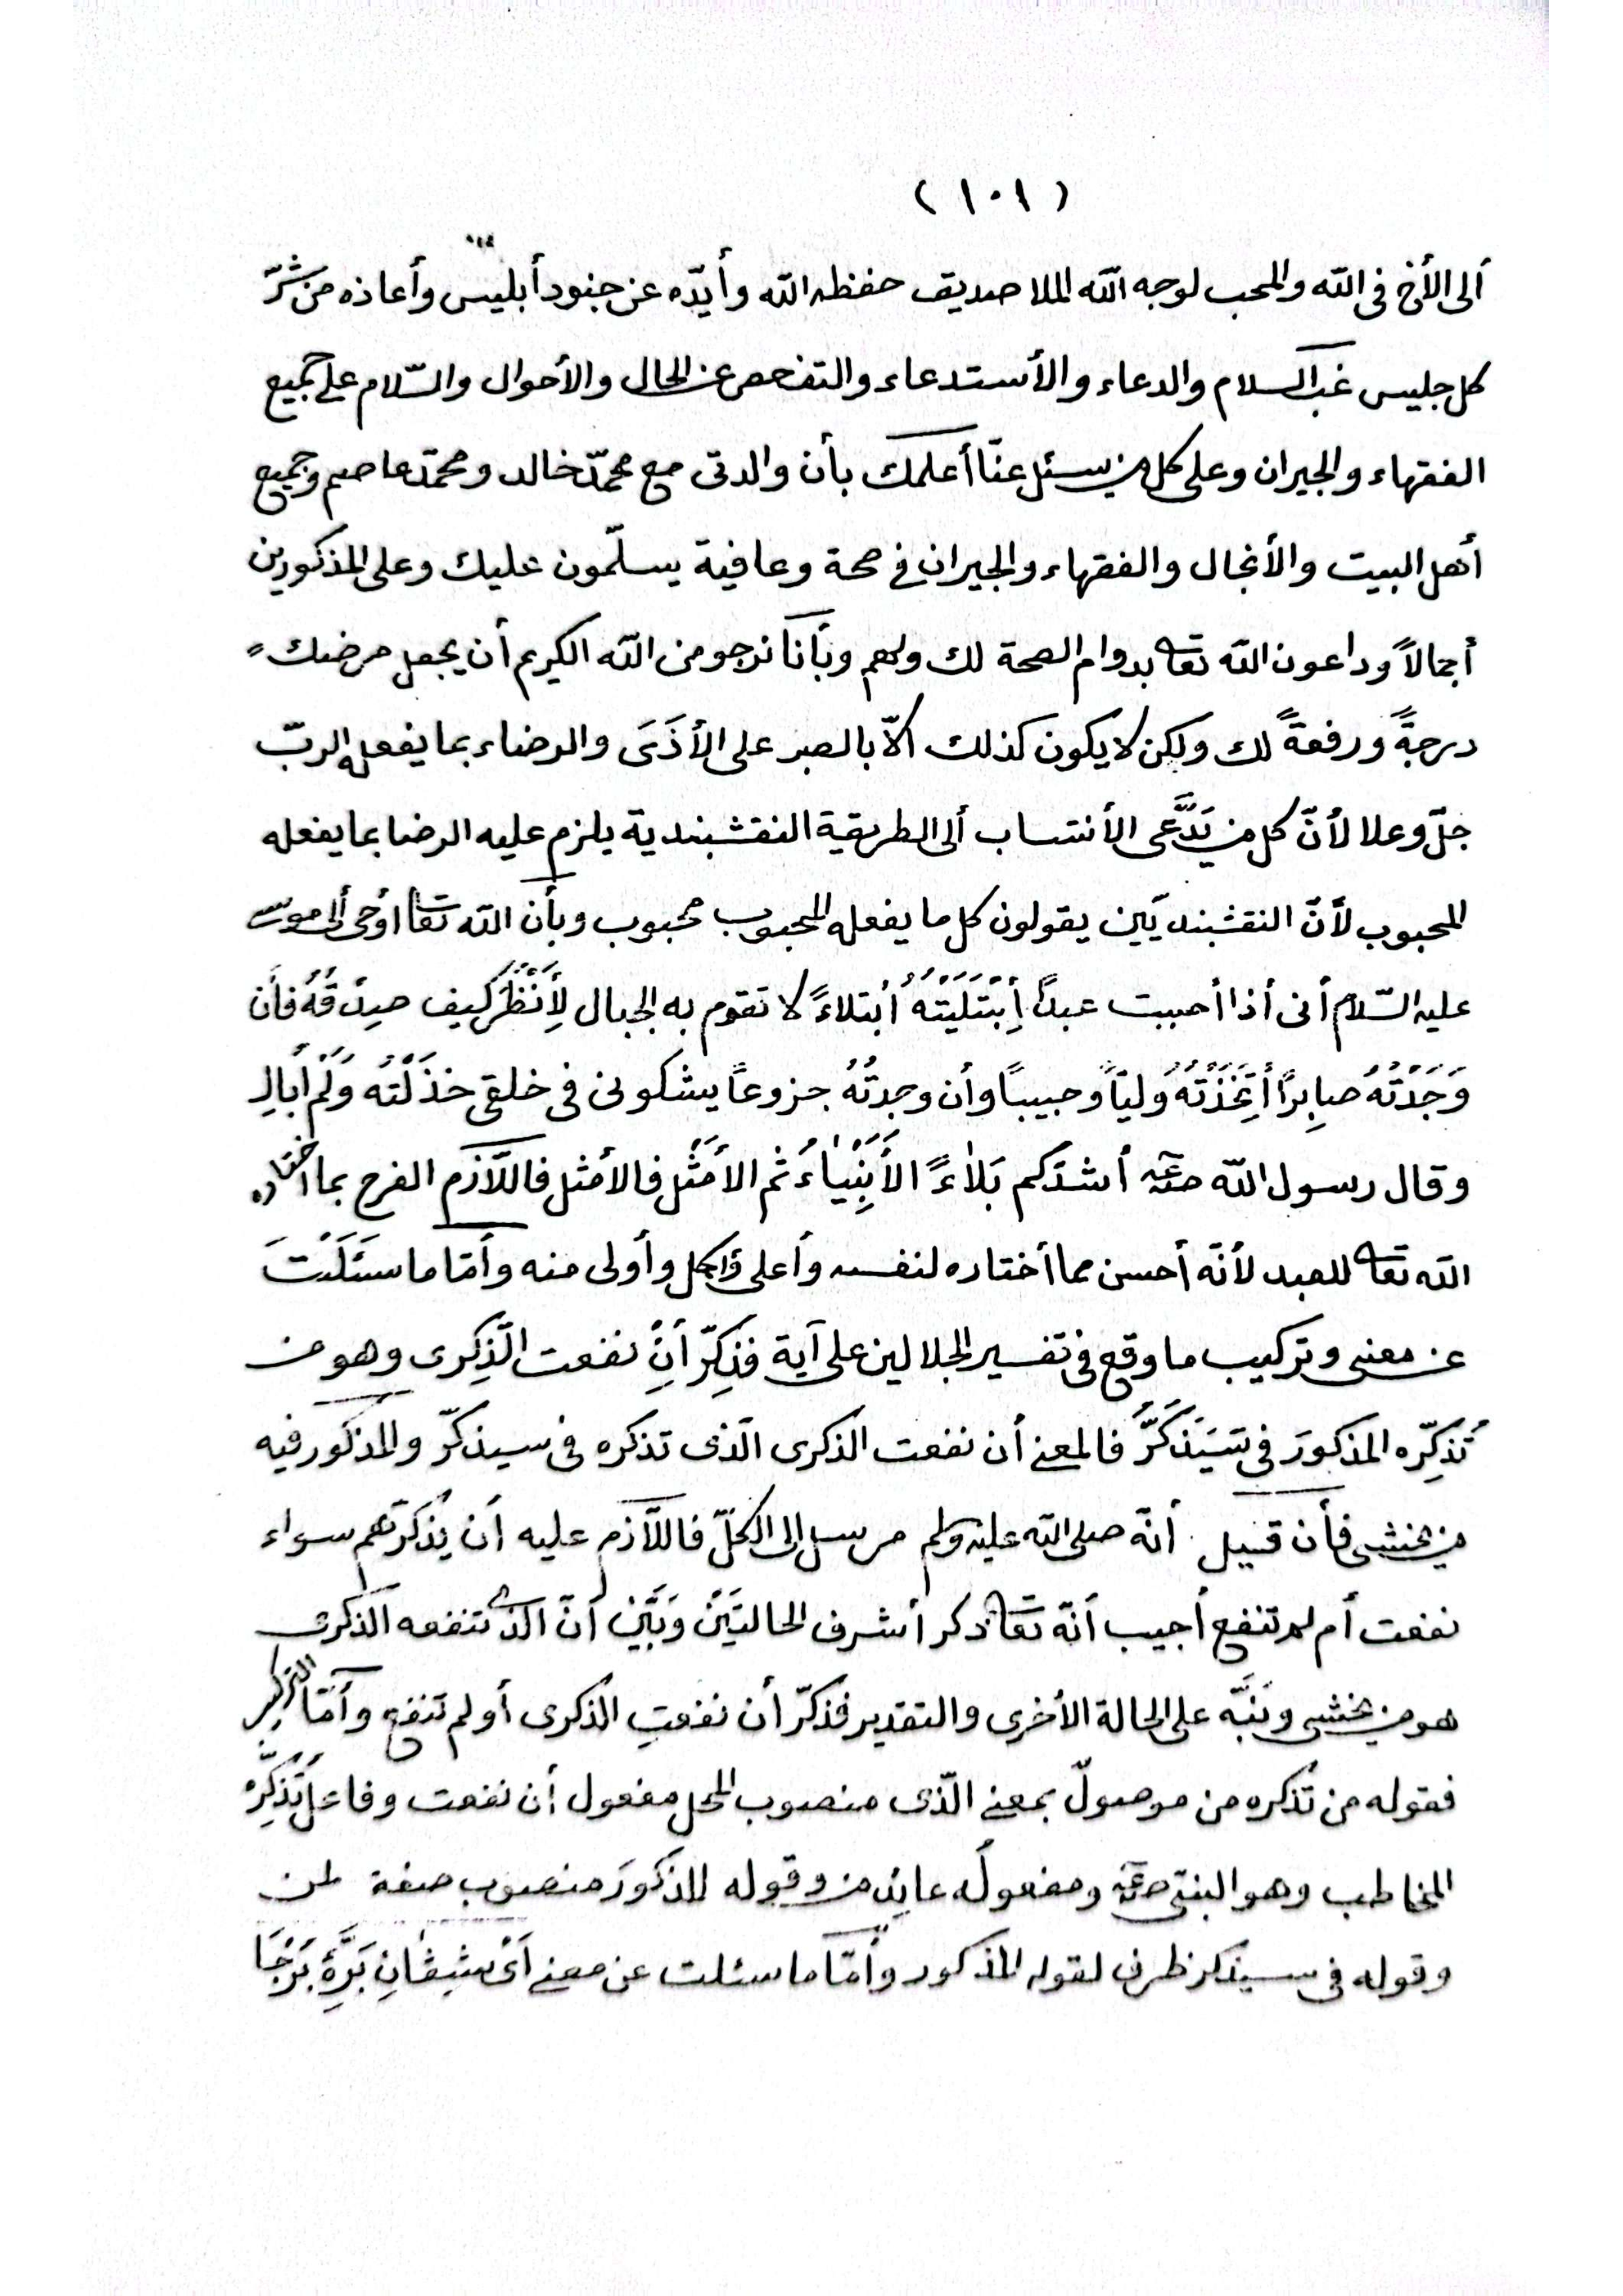 (١٠١)
ألى الأخ فى الله والمحب لوجه الله الملا صديق حفظه الله وأيّده عن جنود أبليس وأعاذه من شرّ
كل جليس غب السلام والدعاء والأستدعاء والتفحص عن الحال والأحوال والسّلام على جميع
الفقهاء والجيران وعلى كل من يسئل عنّا أعلمك بأن والدتى مع محمّد خالد ومحمّد عاصم وجميع
أهل البيت والأنجال والفقهاء والجيران فى صحة وعافية يسلّمون عليك وعلى المذكورين
أجمالاً وداعون الله تعا بدوام الصحة لك ولهم وبأنّا نرجو من الله الكريم أن يجعل مرضك
درجةً ورفعةً لك ولكن لا يكون كذلك ألاّ بالصبر على الأذَىَ والرضاء بما يفعل الربّ
جلّ وعلا لأنّ كل من يَدَّعى الأنتساب ألى الطريقية النقشبندية يلزم عليه الرضا بما يفعله
المحبوب لأنّ النقشبنديّين يقولون كل ما يفعله المحبوب محبوب وبأن الله تعا أوحى ألى موسى
عليه السّلام أنى أذا أحببت عبدًا أِبْتَلَيْتَهُ أُبتلاءً لا تقوم به الجبال لِأَنْظُرَ كيف صِدْقُهُ فأن
وَجَدْتُهُ صابِرًا أتَّخَذْتُهُ وليّاً وحبيبًا وأن وجدتُهُ جزوعًا يشكونى فى خلقى خذَلْتُه وَلَمْ أُبالِ
وقال رسول الله صلعم أشدّكم بَلاٰءً الأَنبِيٰاءُ ثم الأَمْثَل فالأمثل فاللاَّزم الفرح بما اختاره
الله تعا للعبد لأنّه أحسن مما أختاره لنفسه وأعلى وأكمل وأولى منه وأمّا ما سَئَلْتَ
عن معنى وتركيب ما وقع فى تفسير الجلالين على آية فذِكِّرْ أنِ نفعت الذِّكرى وهو من
تُذكِّره المذكورَ فى سَيَذَّكَّرُ فالمعنى أن نفعت الذكرى الّذى تذكره فى سيذكّر والمذكور فيه
من يخشى فأن قيل أنّه صلى الله عليه وسلم مرسل إلى الكلّ فاللاَّزم عليه أن يُذكّرهم سواء
نفعت أم لم تنفع أجيب أنّه تعا ذكر أشرف الحالتَيْن وَبَيَّن أنّ الذى تنفعه الذكرى
هو من يخشى ونَبَّه على الحالة الأخرى والتقدير فذكّر أن نفعتِ الذكرى أو لم تنفع وأمّا التركيب
فقوله من تُذكره من موصولّ بمعنى الّذى منصوب المحل مفعول أن نفعت وفاعل تُذَكِّرُه
المخاطب وهو النبىّ صلعم ومفعولُه عايد من وقوله المذكورَ منصوب صفة لمن
وقوله فى سيذكر ظرف لقوله المذكور وأمّا ما سئلت عن معنى